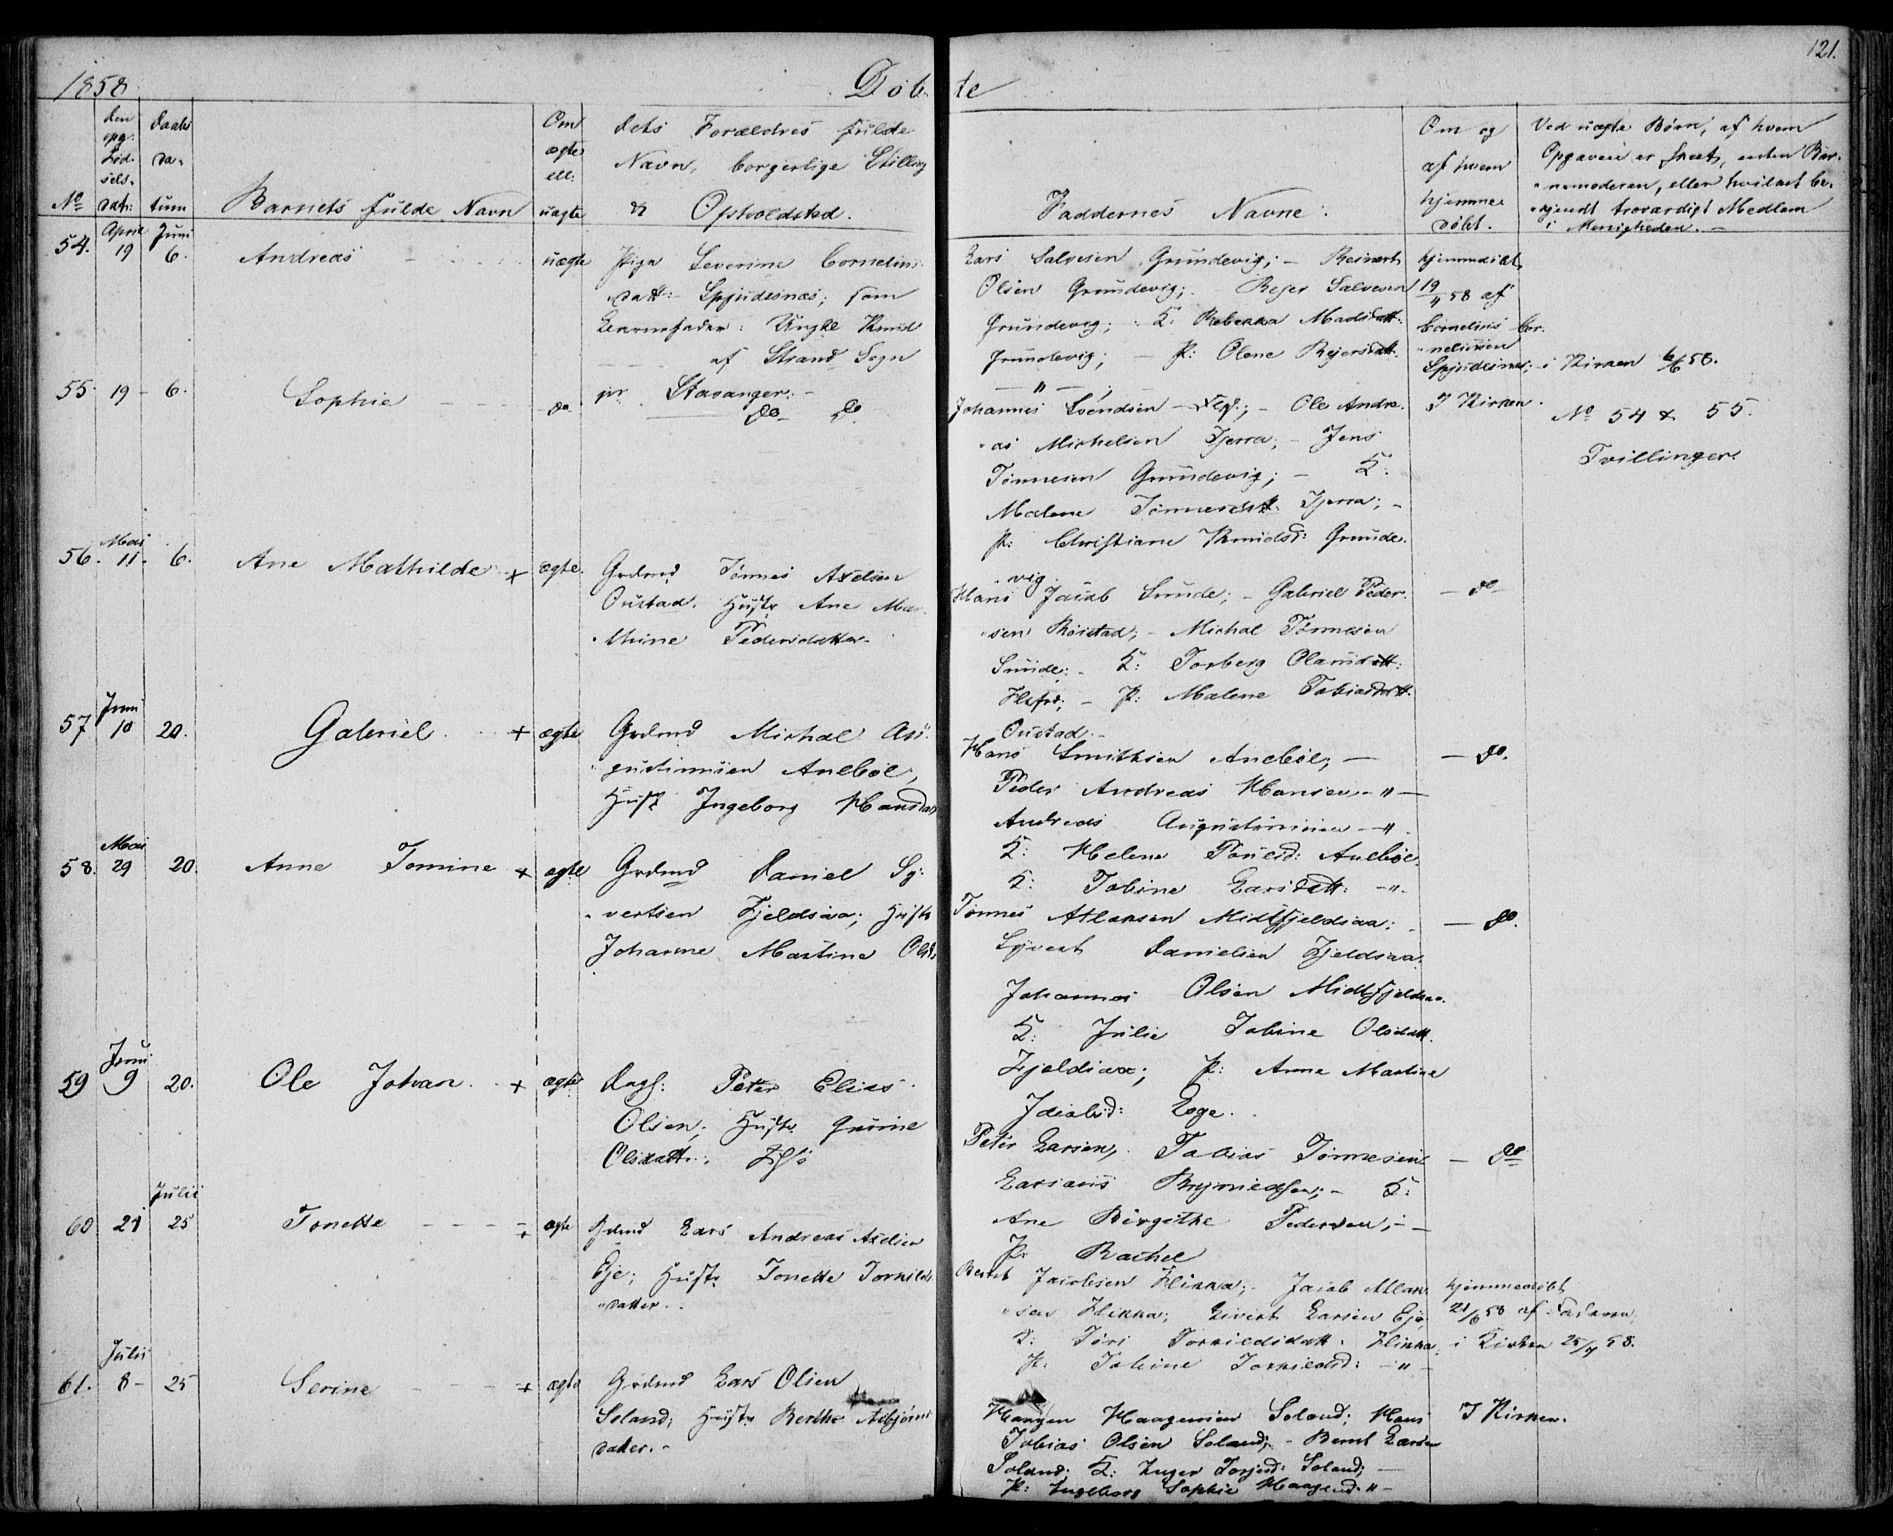 121.
1858 Døb- te
No
den opg: Fød- sels- dat:
Daabs da- tum
Barnets fulde Navn
Om ægte ell: uægte
dets Forældres fulde
Navn, borgerlige Stilling
& Opholdsted.
Faddernes Navne.
Om og af hvem hjemme- døbt.
Ved uægte Børn, af hvem
Opgaven er skeet, enten Bar-
nemoderen, eller hvilket be-
kjendt troværdigt Medlem
i Menigheden. -
54. April 19 Juni 6. Andreas uægte
Pige Severine Cornelius-
datt: Spjudesnæs; som
Barnefader: Ungkl Knud
af Strand Sogn
pr. Stavanger. -
Lars Salvesen Grundevig; - Reinert
Olsen Grundevig; - Rejer Salvesen
Grundevig; K: Rebekka Madsdatt:
Grundevig; - P: Olene Rejersdatt:
- " -
hjemmedøbt
19/4 58 af
Cornelius Cor-
neliusen
Spjudesnæs; - i Kirken 6/6 58.
55. 19 - 6. Sophie do
do do
Johannes Svendsen - Ole Andre-
as Michelsen Tjerra; - Jens
Tønnesen Grundevig; - K:
Malene Tønnesdtt: Tjerra; -
P: Christiane Knudsd: Grunde-
vig.
I Kirken.
No 54 & 55.
Tvillinger.
56. Mai 11. 6. Ane Mathilde + ægte.
Grdmd Tønnes Axelsen
Oustad. Hustr Ane Mar-
thine Pedersdatter -
Hans Jacob Sunde; - Gabriel Peder-
sen Røistad; - Michal Tønnesen
Sunde; - K: Torberg Olausdatt:
- P: Malene Tobiasdatt.
Oustad. -
- do -
57. Juni 10 20. Gabriel + ægte
Grdmd Michal Au-
gustinusen Anebøe,
Hust Ingeborg Hansdat
Hans Smithsen Anebøe; -
Peder Andreas Hansen - " -
Andreas Augustinusen - " -
K: Helene Poulsd: Anebøe.
K: Tobine Larsdatt: - " -
- do.
58. Mai 29 20. Anne Tomine + ægte
Grdmd Daniel Sy-
vertsen Fjeldsaa; Hustr
Johanne Martine Olsd.
Tønnes Atlaksen Midtfjeldsaa;
Syvert Danielsen Fjeldsaa.
Johannes Olsen Midtfjeldsaa.
K: Julie Tobine Olsdatt.
Fjeldsaa; P: Anne Martine
Jacobsd: Løge.
- do.
59 Juni 9 20. Ole Johan. + ægte
Dagl: Peter Elias
Olsen; Hustr Gunine
Olsdatt:
Peter Larsen, Tobias Tønnesen
K:
Ane Birgithe Pedersen; -
P: Rachel
- do
60 21 Julii 25 Tonette - - - + ægte
Grdmd Lars Andreas Atlesen
Eje; Hustr Tonette Torkilds-
datter. -
Bernt Jacobsen Flikka; - Jacob Atlak-
sen Flikka; Sivert Larsen Eje;
K: Turi Torkildsdatt. Flikka.
P: Tobine Torkildsd: - " -
hjemmedøbt
21/6 58 af Faderen,
i Kirken 25/7 58.
61. Julii 8 - 25 Serine - - - + ægte
Grdmd Lars Olsen
Soland; Hustr Berthe Asbjørns-
datter. -
Haagen Haagensen Soland; Hans
Tobias Olsen Soland; - Bernt Larsen
Soland; K: Inger Torjesd: Soland; -
P: Ingeborg Sophie Haagensd. " -
I Kirken.